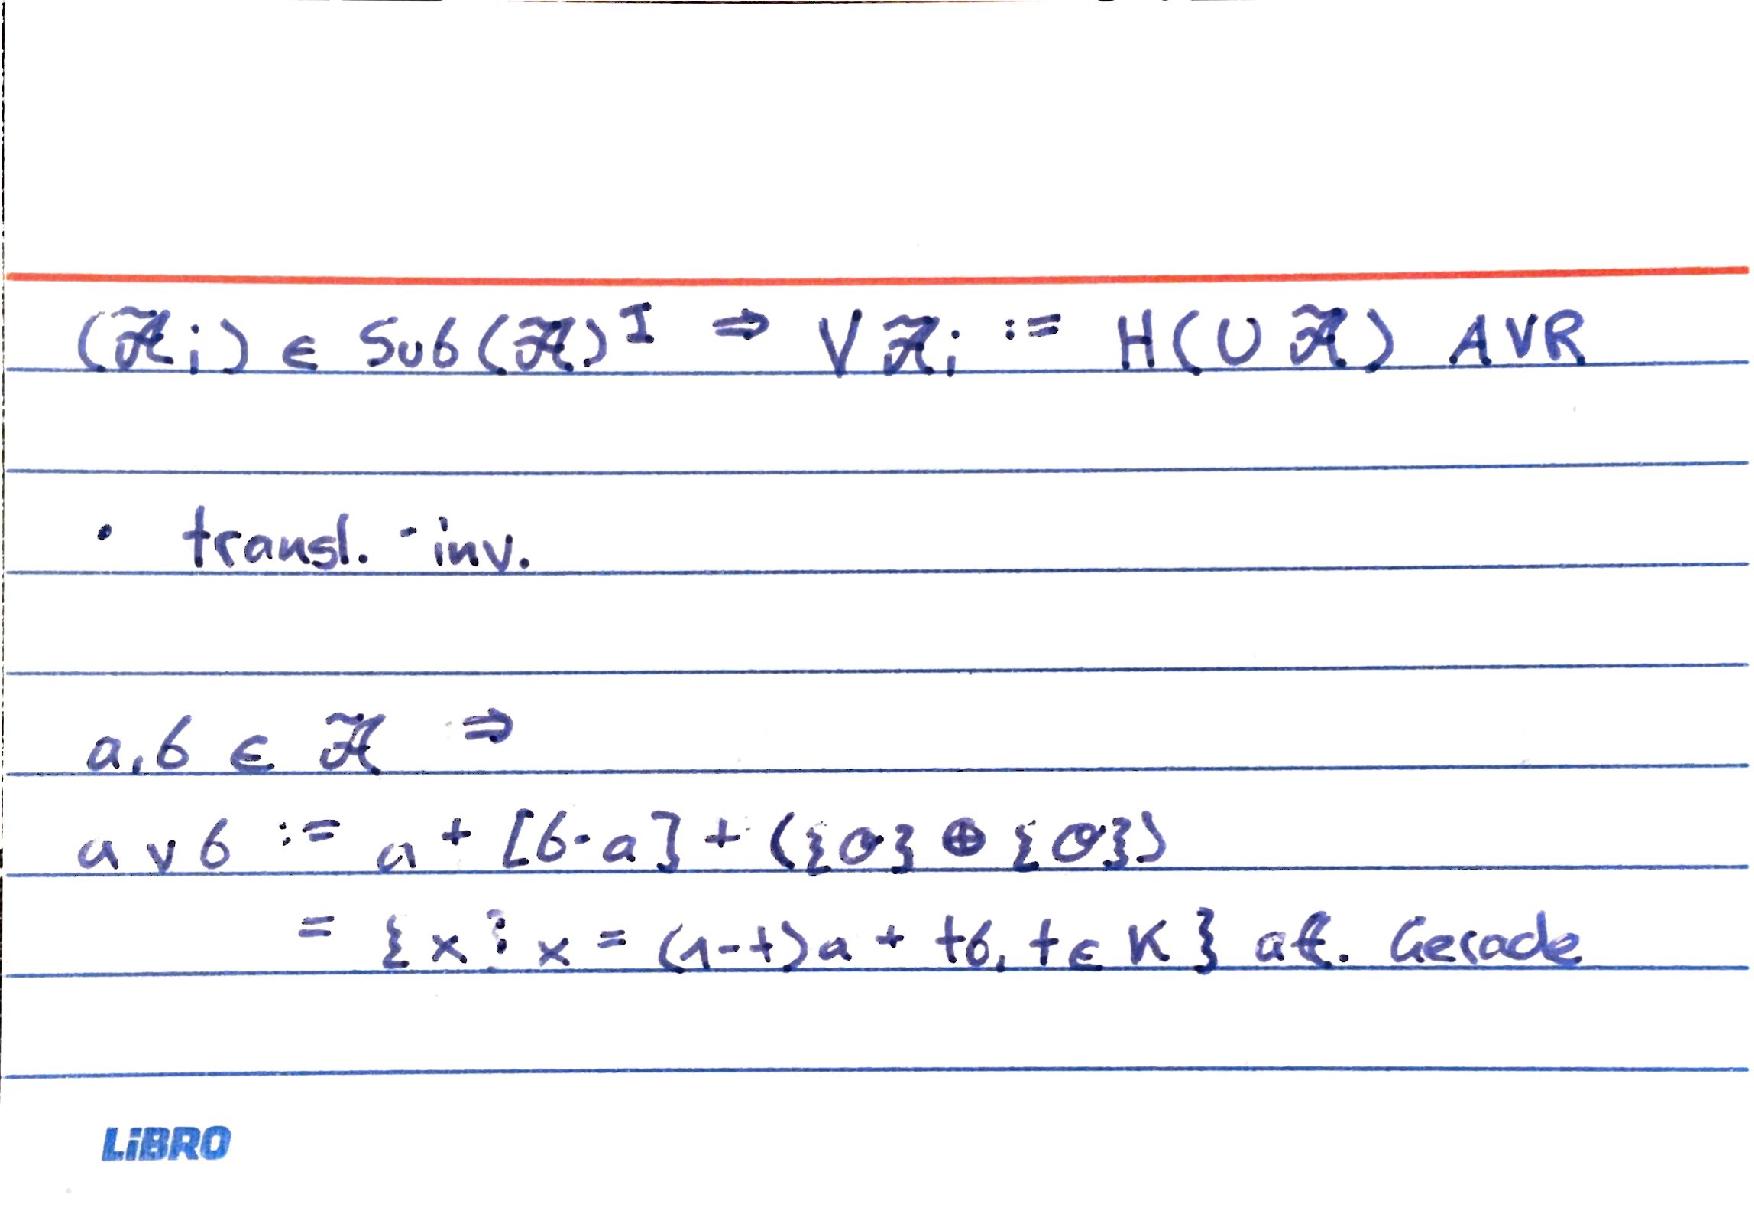 (𝒜̃ᵢ) ∈ Sub(𝒜̃)ᴵ ⇒ ⋁ 𝒜̃ᵢ := H(∪ 𝒜̃) AVR
• transl. -inv.
a, b ∈ 𝒜̃ ⇒
a ∨ b := a + [b-a] + ({σ} ⊕ {σ})
= {x : x = (1-t)a + tb, t ∈ K} aff. Gerade
LiBRO